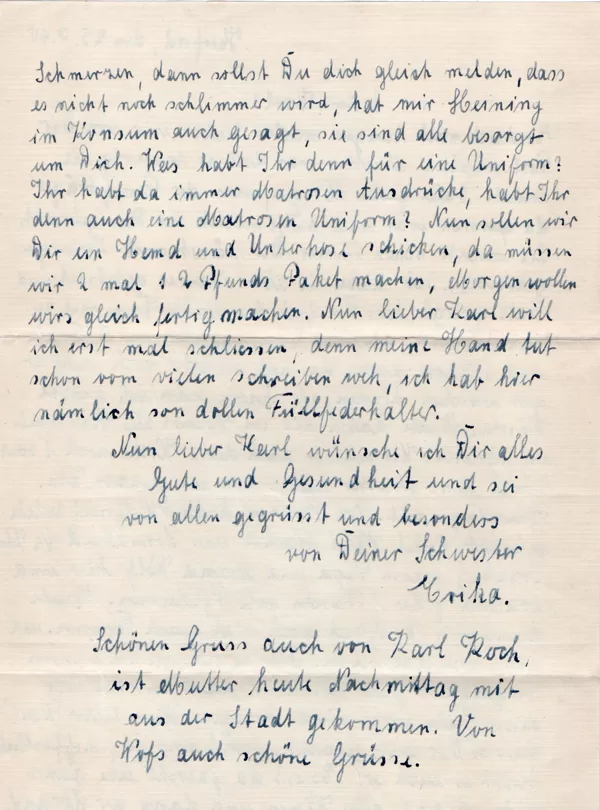 Schmerzen, dann sollst Du dich gleich melden, dass
es nicht noch schlimmer wird, hat mir Heining
im Konsum auch gesagt, sie sind alle besorgt
um Dich. Was habt Ihr denn für eine Uniform?
Ihr habt da immer Matrosen Ausdrücke, habt Ihr
denn auch eine Matrosen Uniform? Nun sollen wir
Dir ein Hemd und Unterhose schicken, da müssen
wir 2 mal 1 2 Pfunds Paket machen, Morgen wollen
wirs gleich fertig machen. Nun lieber Karl will
ich erst mal schliessen, denn meine Hand tut
schon vom vielen schreiben weh, ich hab hier
nämlich son dollen Füllfederhalter.
Nun lieber Karl wünsche ich Dir alles
Gute und Gesundheit und sei
von allen gegrüsst und besonders
von Deiner Schwester
Erika.
Schönen Gruss auch von Karl Koch,
ist Mutter heute Nachmittag mit
aus der Stadt gekommen. Von
auch schöne Grüsse.